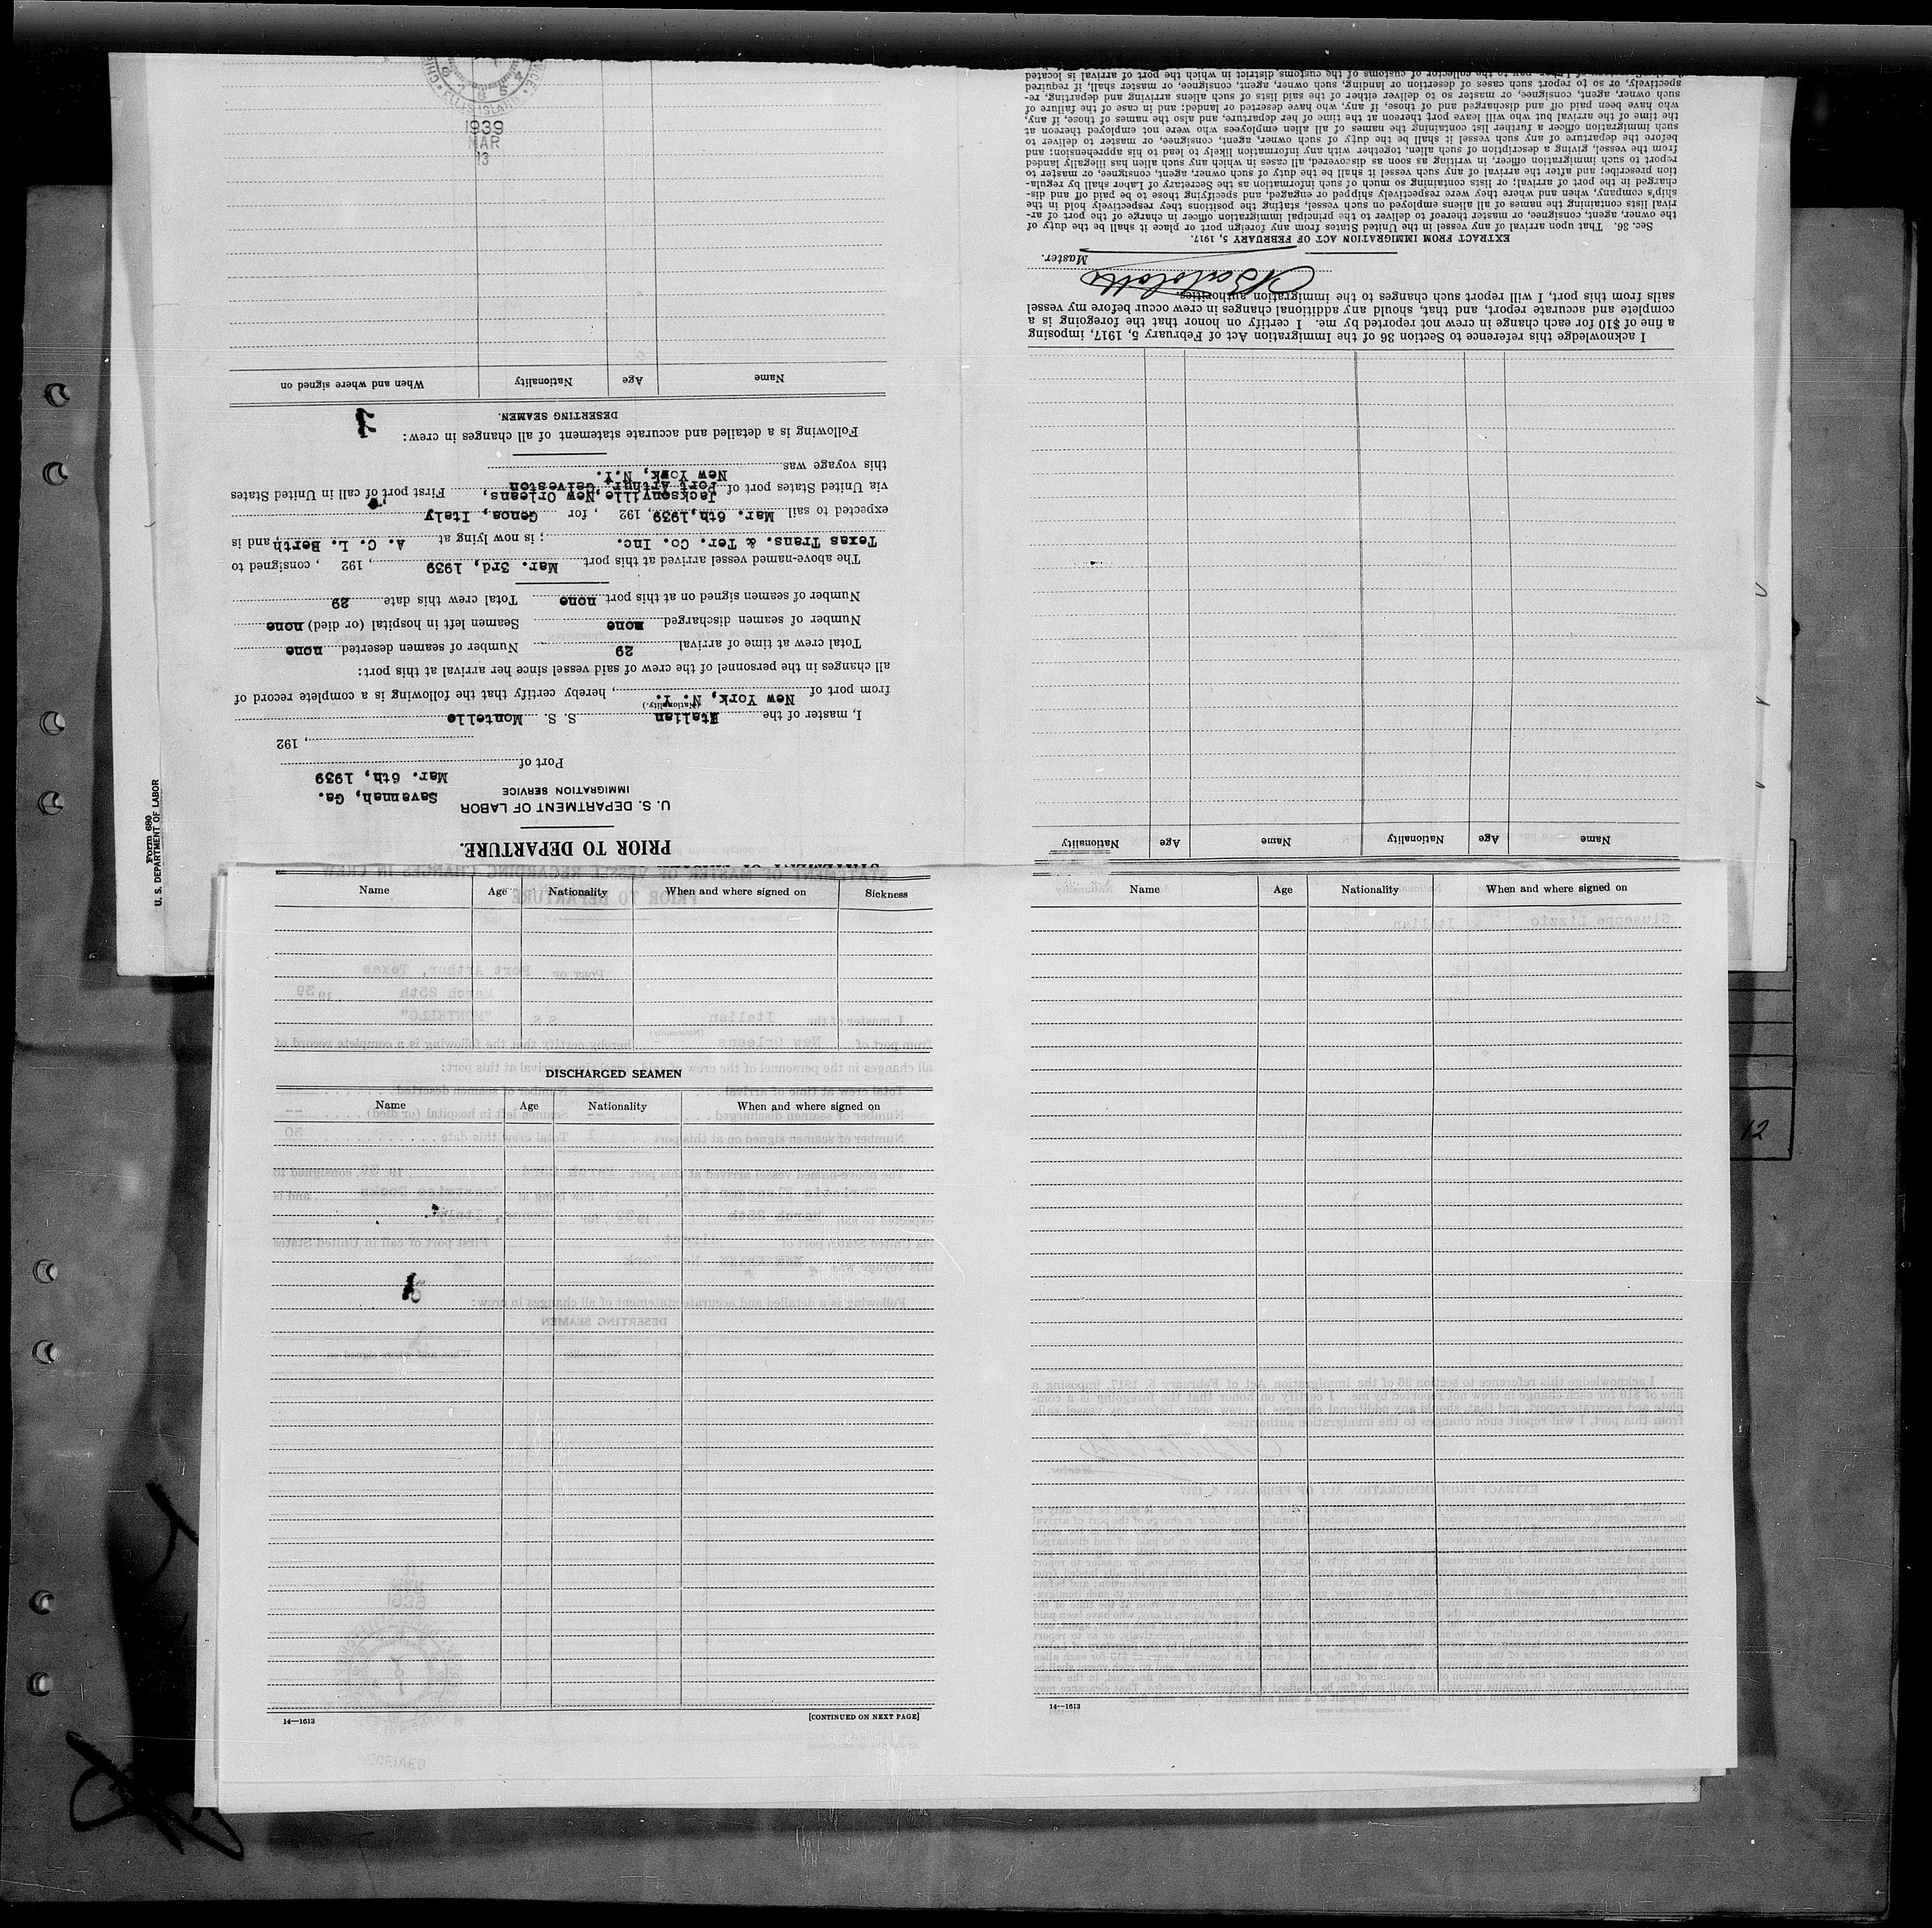 PRIOR TO DEPARTURE.
U. S. DEPARTMENT OF LABOR
IMMIGRATION SERVICE
Savannah, Ga.
Mar. 6th, 1939
Port of
, 192
I, master of the Italian S. S. Montello
(Nationality.)
from port of New York, N. Y. , hereby certify that the following is a complete record of
all changes in the personnel of the crew of said vessel since her arrival at this port:
Total crew at time of arrival 29 Number of seamen deserted none
Number of seamen discharged none Seamen left in hospital (or died) none
Number of seamen signed on at this port none Total crew this date 29
The above-named vessel arrived at this port Mar. 3rd, 1939 , 192 , consigned to
Texas Trans. & Ter. Co. Inc. ; is now lying at A. C. L. Berth and is
expected to sail Mar. 6th, 1939 , 192 , for Genoa, Italy
Jacksonville, New Orleans,
via United States port of Port Arthur, Galveston First port of call in United States
New York, N.Y.
this voyage was
Following is a detailed and accurate statement of all changes in crew:
DESERTING SEAMEN.
Name Age Nationality When and where signed on
13
MAR
1939
ELLIS ISLAND
Name Age Nationality Name Age Nationality
I acknowledge this reference to Section 36 of the Immigration Act of February 5, 1917, imposing
a fine of $10 for each change in crew not reported by me. I certify on honor that the foregoing is a
complete and accurate report, and that, should any additional changes in crew occur before my vessel
sails from this port, I will report such changes to the immigration authorities.
Master.
EXTRACT FROM IMMIGRATION ACT OF FEBRUARY 5, 1917.
Sec. 36. That upon arrival of any vessel in the United States from any foreign port or place it shall be the duty of
the owner, agent, consignee, or master thereof to deliver to the principal immigration officer in charge of the port of ar-
rival lists containing the names of all aliens employed on such vessel, stating the positions they respectively hold in the
ship's company, when and where they were respectively shipped or engaged, and specifying those to be paid off and dis-
charged in the port of arrival; or lists containing so much of such information as the Secretary of Labor shall by regula-
tion prescribe; and after the arrival of any such vessel it shall be the duty of such owner, agent, consignee, or master to
report to such immigration officer, in writing as soon as discovered, all cases in which any such alien has illegally landed
from the vessel, giving a description of such alien, together with any information likely to lead to his apprehension; and
before the departure of any such vessel it shall be the duty of such owner, agent, consignee, or master to deliver to
such immigration officer a further list containing the names of all alien employees who were not employed thereon at
the time of the arrival but who will leave port thereon at the time of her departure, and also the names of those, if any,
who have been paid off and discharged and of those, if any, who have deserted or landed; and in case of the failure of
such owner, agent, consignee, or master so to deliver either of the said lists of such aliens arriving and departing, re-
spectively, or so to report such cases of desertion or landing, such owner, agent, consignee, or master shall, if required
pay to the collector of customs of the customs district in which the port of arrival is located
Form 680
U. S. DEPARTMENT OF LABOR
Name Age Nationality When and where signed on Sickness
DISCHARGED SEAMEN
Name Age Nationality When and where signed on
14—1613 [CONTINUED ON NEXT PAGE]
Name Age Nationality When and where signed on
14—1613
12